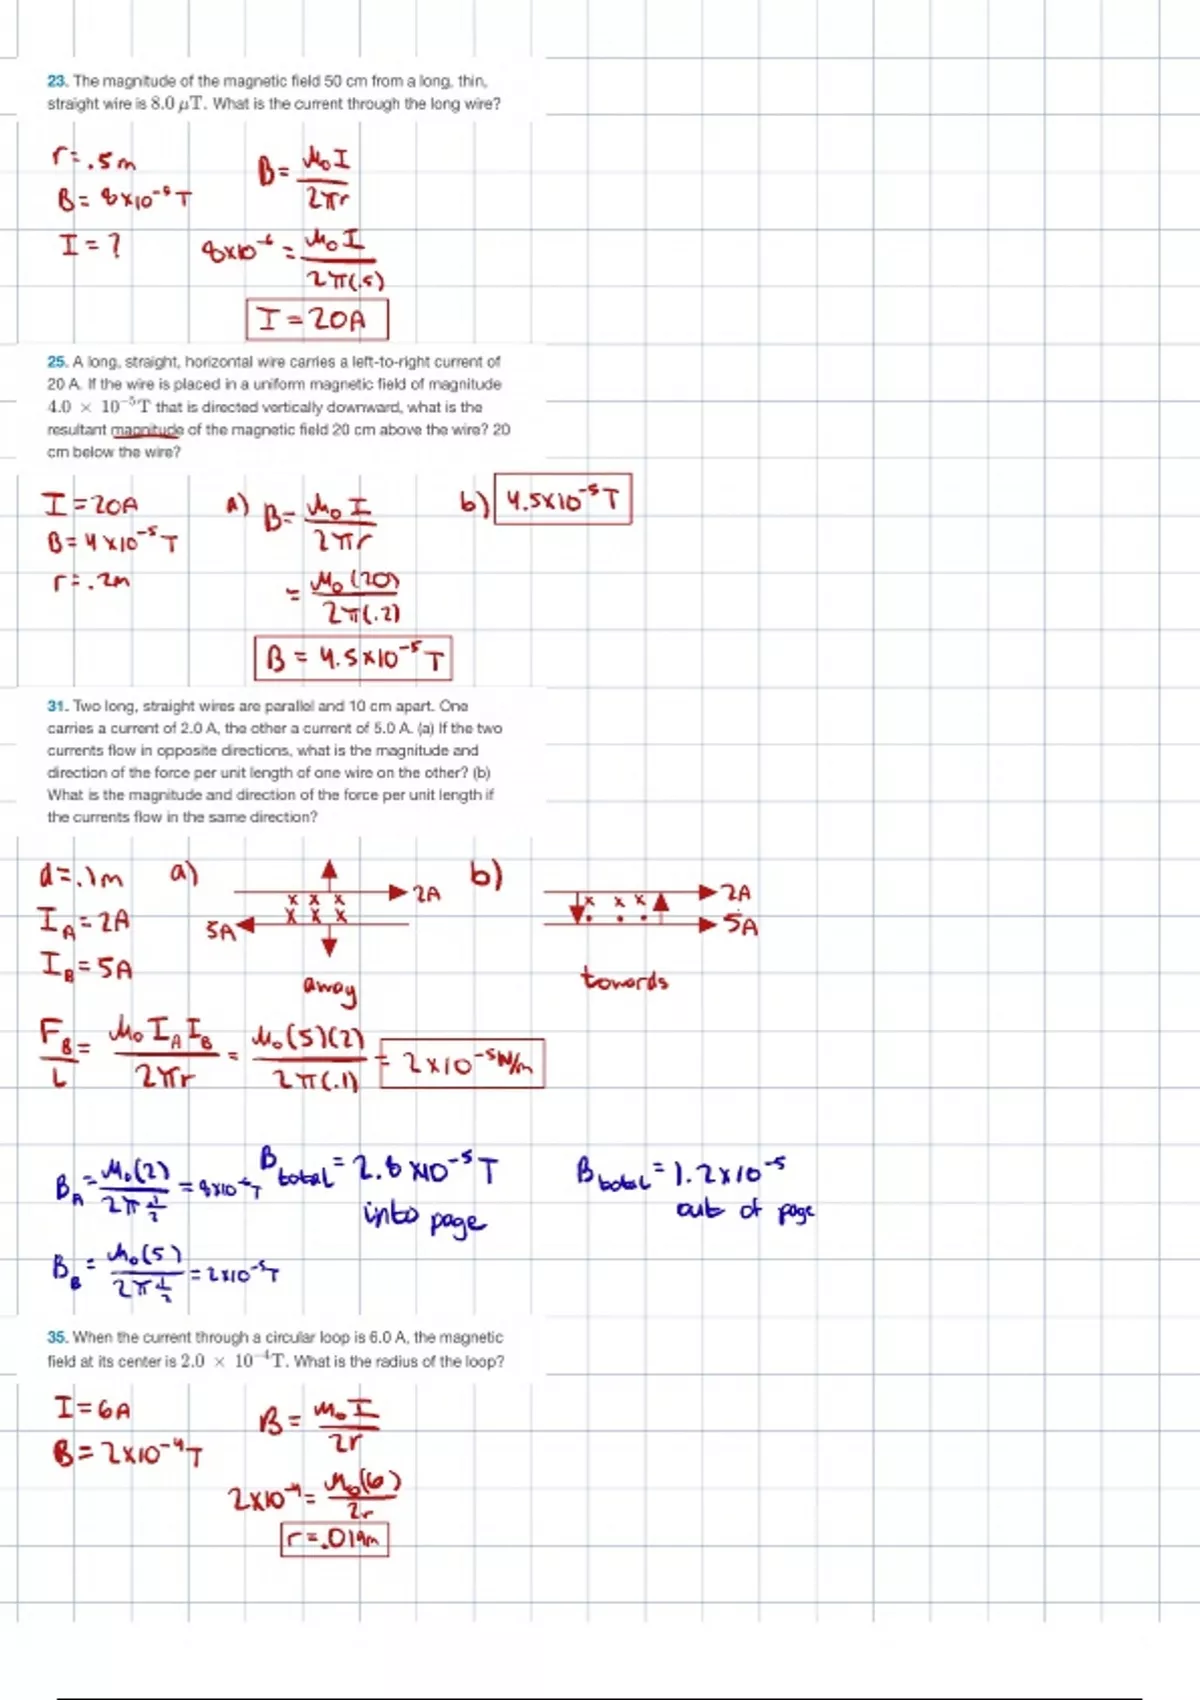 23. The magnitude of the magnetic field 50 cm from a long, thin,
straight wire is 8.0 μT. What is the current through the long wire?
r = .5m
B = μ₀I / 2πr
B = 8×10⁻⁶ T
I = ?
8×10⁻⁶ = μ₀I / 2π(.5)
I = 20A
25. A long, straight, horizontal wire carries a left-to-right current of
20 A. If the wire is placed in a uniform magnetic field of magnitude
4.0 × 10⁻⁵T that is directed vertically downward, what is the
resultant magnitude of the magnetic field 20 cm above the wire? 20
cm below the wire?
I = 20A
B = 4×10⁻⁵ T
r = .2m
a) B = μ₀I / 2πr
= μ₀(20) / 2π(.2)
B = 4.5×10⁻⁵ T
b) 4.5×10⁻⁵ T
31. Two long, straight wires are parallel and 10 cm apart. One
carries a current of 2.0 A, the other a current of 5.0 A. (a) If the two
currents flow in opposite directions, what is the magnitude and
direction of the force per unit length of one wire on the other? (b)
What is the magnitude and direction of the force per unit length if
the currents flow in the same direction?
d = .1m
I_A = 2A
I_B = 5A
a)
2A
x x x
x x x
5A
away
b)
2A
x x x
. . .
5A
towards
F_B / L = μ₀ I_A I_B / 2πr = μ₀(5)(2) / 2π(.1) = 2×10⁻⁵ N/m
B_A = μ₀(2) / 2π .1/2 = 8×10⁻⁶ T
B_B = μ₀(5) / 2π .1/2 = 2×10⁻⁵ T
B total = 2.8×10⁻⁵ T
into page
B total = 1.2×10⁻⁵
out of page
35. When the current through a circular loop is 6.0 A, the magnetic
field at its center is 2.0 × 10⁻⁴T. What is the radius of the loop?
I = 6A
B = 2×10⁻⁴ T
B = μ₀I / 2r
2×10⁻⁴ = μ₀(6) / 2r
r = .019m